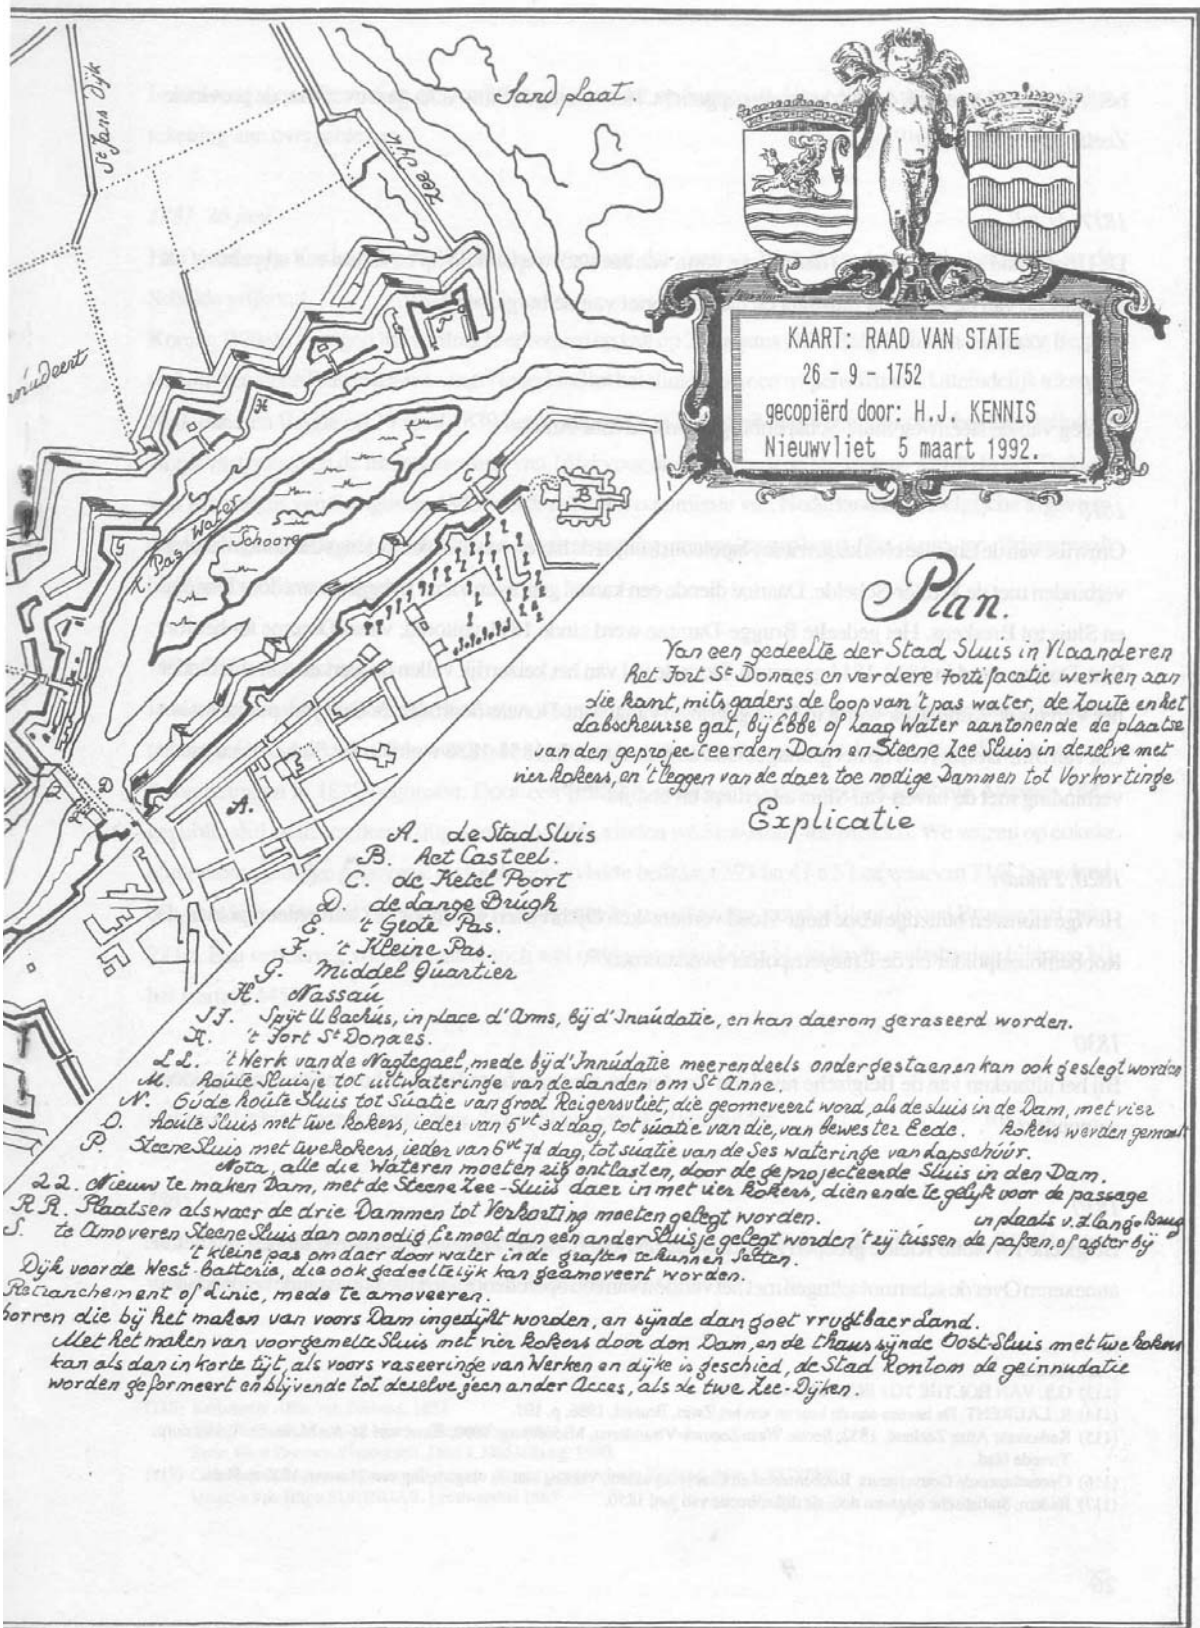 St Jans Dÿk
Sandplaat
Zee Dÿk
KAART: RAAD VAN STATE
26 - 9 - 1752
gecopiërd door: H.J. KENNIS
Nieuwvliet 5 maart 1992.
H
G
F
C
B
't Pas Water
Schoore
D
A.
Plan.
Van een gedeelte der Stad Sluis in Vlaanderen
het Fort St Donaes en verdere fortifacatie werken aan
die kant, mitsgaders de loop van 't pas water, de houte en het
dabscheurse gat, bÿ Ebbe of Laag Water aantonende de plaatse
van den geprojecteerden Dam en Steene Zee Sluis in dezelve met
vier kokers, en 't leggen van de daer toe nodige Dammen tot Vorkortinge
Explicatie
A. de Stad Sluis
B. het Casteel.
C. de Ketel Poort
D. de Lange Brugh
E. 't Grote Pas.
F. 't Kleine Pas.
G. Middel Quartier
H. Nassaú
JJ. Spÿt Ubachús, in place d'Arms, bÿ d'Inúdatie, en kan daerom geraseerd worden.
K. 't Fort St Donaes.
LL. 't Werk vande Nagtegael, mede bÿ d'Innúdatie meerendeels ondergestaen en kan ook geslegt worden
M. houte Sluisje tot uitwateringe van de Landen om St Anne.
N. Oúde houte Sluis tot Súatie van groot Reigersvliet, die geomeveert word, als de sluis in de Dam, met vier
kokers werden gemaakt
O. houte Sluis met twe kokers, ieder van 5 vt 3d dag, tot súatie van die, van bewester Eede.
P. Steene Sluis met twe kokers, ieder van 6 vt 7d dag, tot súatie van de Ses wateringe van Lapschúúr.
Nota, alle die Wateren moeten zig ontlasten, door de geprojecteerde Sluis in den Dam.
22. Nieuw te maken Dam, met de Steene Zee-Sluis daer in met vier kokers, dienende te gelyk voor de passage
in plaats v. d Lange Brug
R.R. Plaatsen alswaer de drie Dammen tot Verkorting moeten gelegt worden.
S. te Amoveren Steene Sluis dan onnodig, Er moet dan een ander Sluisje gelegt worden 't zÿ tússen de paßen, of agter bÿ
't kleine pas om daer door water in de graften te kunnen Setten.
Dÿk voor de West-batterie, die ook gedeeltelÿk kan geamoveert worden.
Retranchement of Linie, mede te amoveeren.
horren die bÿ het maken van voors Dam ingedÿkt worden, en sÿnde dan goet vrugtbaer Land.
Met het maken van voorgemelte Sluis met vier kokers door den Dam, en de thans sÿnde Oost-Sluis met twe kokers
kan als dan in korte tÿt, als voors raseeringe van Werken en dÿke is geschied, de Stad Rontom de geinnudatie
worden geformeert en blÿvende tot dezelve geen ander Acces, als de twe Zee-Dÿken.